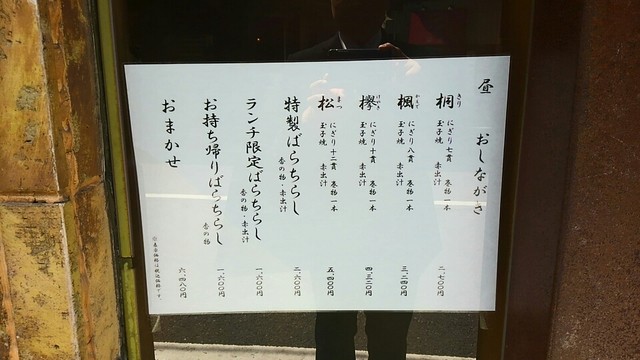 昼 おしながき
桐 きり にぎり七貫 巻物一本 玉子焼 赤出汁 二、七〇〇円
楓 かえで にぎり八貫 巻物一本 玉子焼 赤出汁 三、二四〇円
欅 けやき にぎり十貫 巻物一本 玉子焼 赤出汁 四、三二〇円
松 まつ にぎり十二貫 巻物一本 玉子焼 赤出汁 五、四〇〇円
特製ばらちらし 香の物・赤出汁 二、六〇〇円
ランチ限定ばらちらし 香の物・赤出汁 一、六〇〇円
お持ち帰りばらちらし 香の物 一、六〇〇円
おまかせ 六、四八〇円
※表示価格は税込価格です。